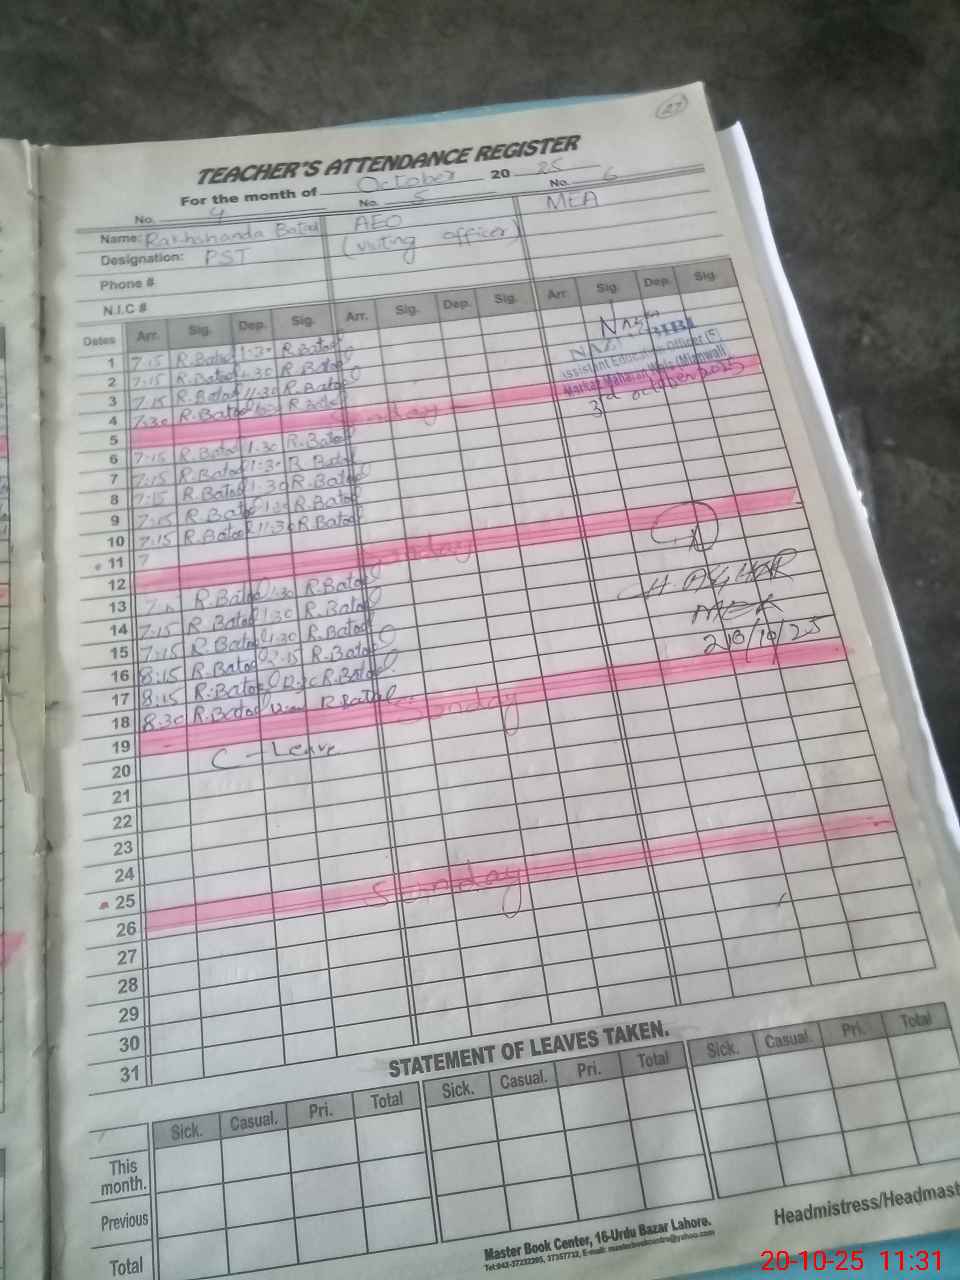 27
TEACHER'S ATTENDANCE REGISTER
For the month of October 20 25
No. 4 No. 5 No. 6
Name: Rakhshanda Batool AEO MEA
Designation: PST (visiting officer)
Phone #
N.I.C #
Dates Arr. Sig. Dep. Sig. Arr. Sig. Dep. Sig. Arr. Sig. Dep. Sig.
1 7.15 R.Batool 1:30 R.Batool
2 7.15 R.Batool 1:30 R.Batool
3 7.15 R.Batool 11:30 R.Batool
Assistant Education Officer
4 7.30 R.Batool R.Batool
3rd october 2025
5 Sunday
6 7.15 R.Batool 1.30 R.Batool
7 7.15 R.Batool 1:30 R.Batool
8 7.15 R.Batool 1:30 R.Batool
9 7.15 R.Batool 1:30 R.Batool
10 7.15 R.Batool 11:30 R.Batool
11 7
12 Sunday
13 R.Batool 1:30 R.Batool
14 7.15 R.Batool 1:30 R.Batool
15 7.15 R.Batool 1:30 R.Batool
16 8:15 R.Batool 2.15 R.Batool
17 8:15 R.Batool R.Batool
18 8.30 R.Batool R.Batool
19 Sunday
20 C - Leave
21
22
23
24
25
26 Sunday
27
28
29
30
31
STATEMENT OF LEAVES TAKEN.
Sick. Casual. Pri. Total Sick. Casual. Pri. Total Sick. Casual. Pri. Total
This month.
Previous
Total
Headmistress/Headmast
Master Book Center, 16-Urdu Bazar Lahore.
Tel:042-37232205, 37357732, E-mail: masterbookcentre@yahoo.com
20-10-25 11:31